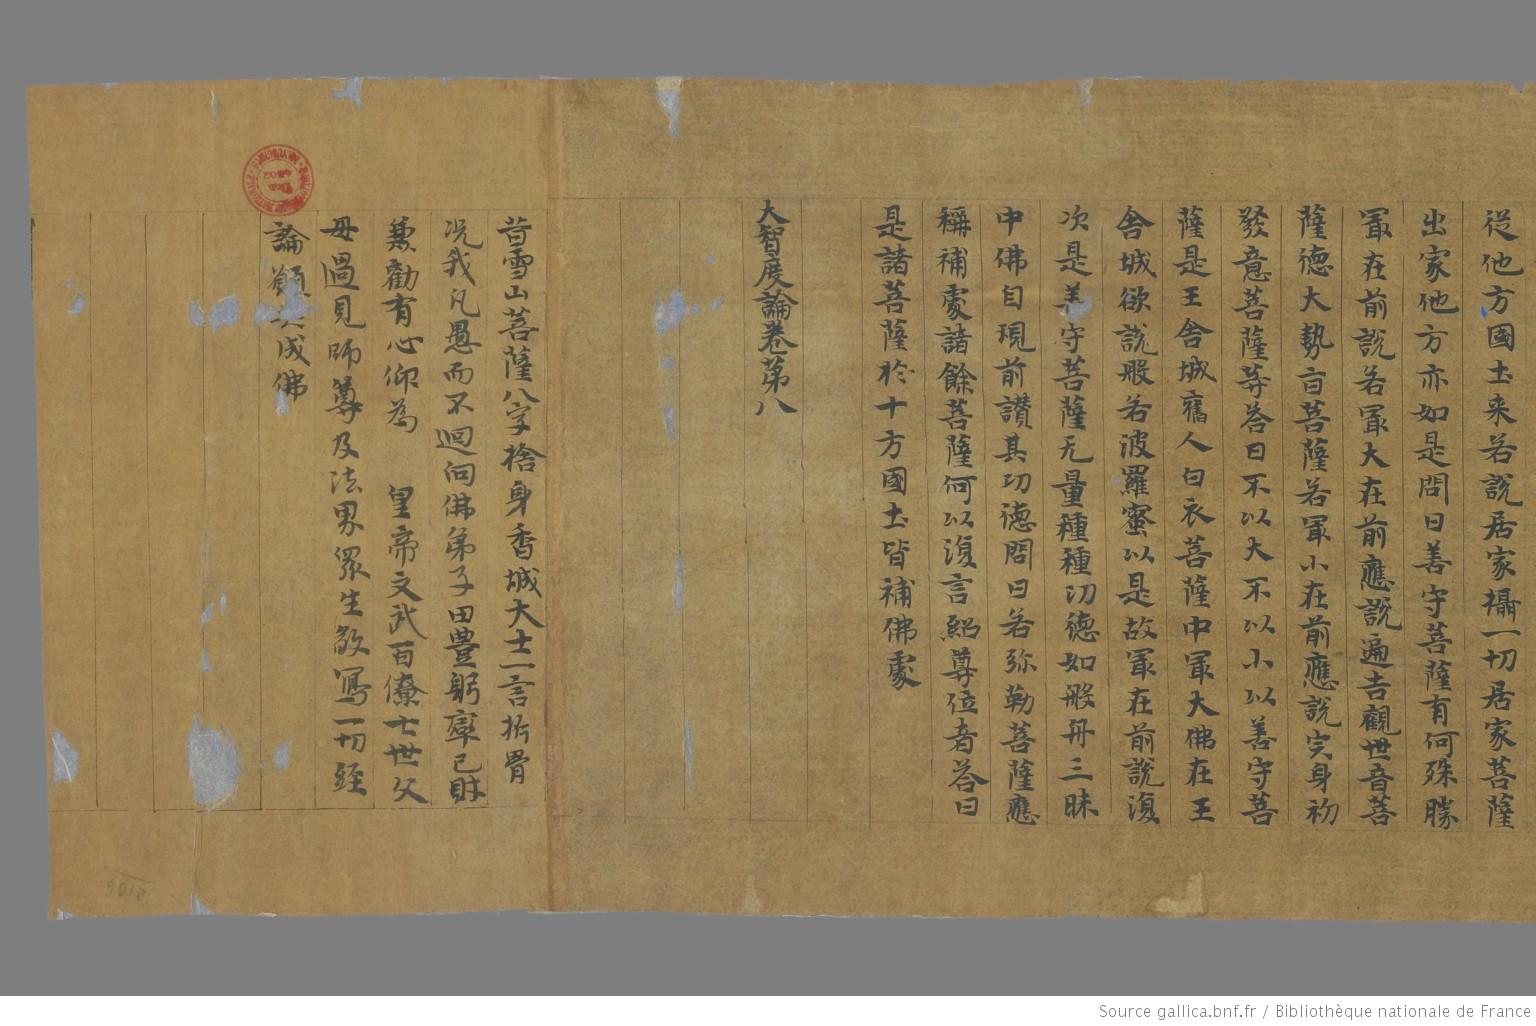 從他方國土来若說居家攝一切居家菩薩
出家他方亦如是問曰善守菩薩有何殊勝
冣在前說若冣大在前應說遍吉觀世音菩
薩德大勢至菩薩若冣小在前應說宍身初
發意菩薩等答曰不以大不以小以善守菩
薩是王舍城舊人白衣菩薩中冣大佛在王
舍城欲說般若波羅蜜以是故冣在前說復
次是善守菩薩无量種種功德如般舟三昧
中佛自現前讃其功德問曰若弥勒菩薩應
稱補處諸餘菩薩何以復言紹尊位者答曰
是諸菩薩於十方國土皆補佛處
大智度論卷第八
昔雪山菩薩八字捨身香城大士一言析骨
况我凡愚而不迴向佛弟子田豊躬率己財
兼勸有心仰為 皇帝文武百僚七世父
母過見師尊及法界衆生敬寫一切経
論願共成佛
Source gallica.bnf.fr / Bibliothèque nationale de France